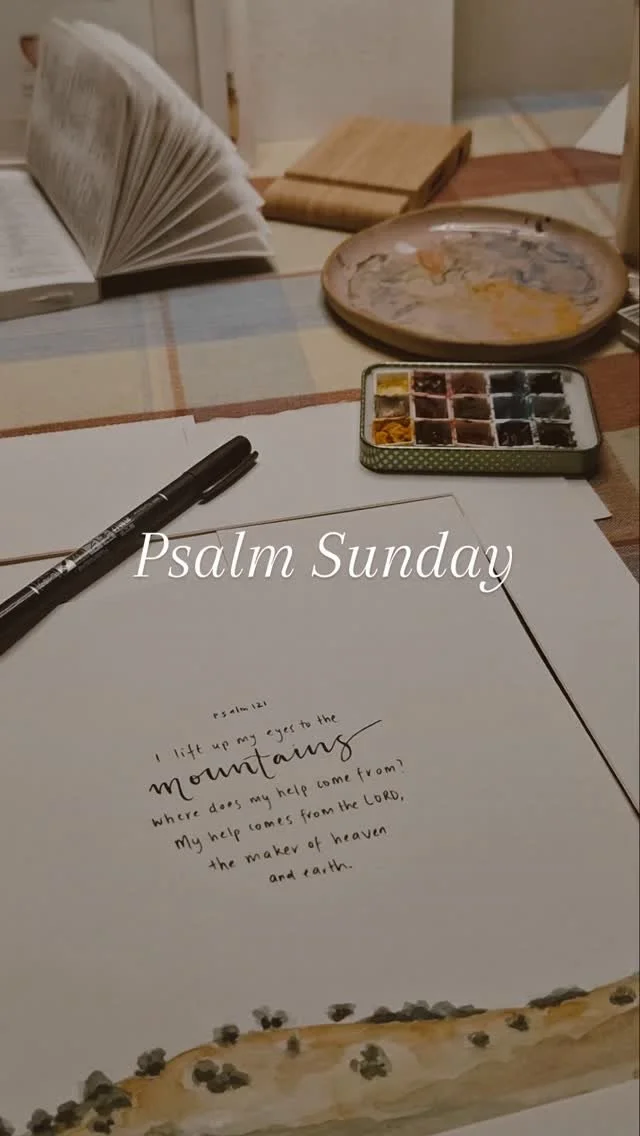 Psalm Sunday
Psalm 121
I lift up my eyes to the
mountains
where does my help come from?
My help comes from the LORD,
the maker of heaven
and earth.